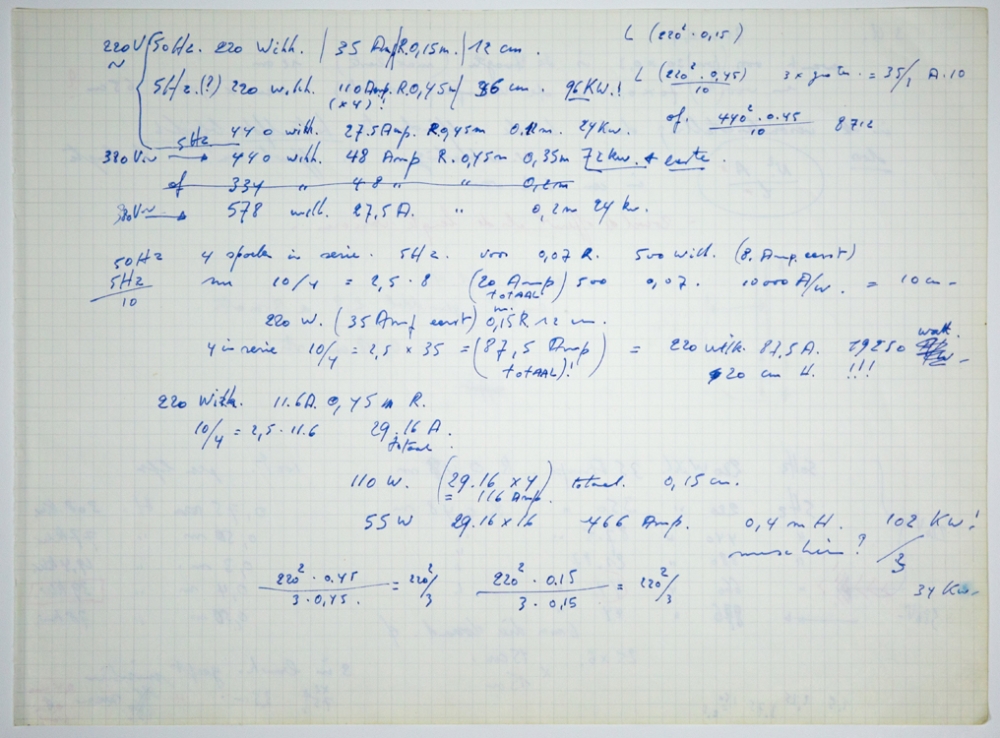 220V 50Hz. 220 Wikk. | 35 Amp R.0,15m. | 12 cm.
L (220² · 0,15)
5Hz.(?) 220 wikk. 110Amp. R.0,45m 36 cm. 96KW.!
(x4)!
L (220² · 0,45) / 10 3x grote = 35/3 A.10
5Hz 440 wikk. 27.5Amp. R0,45m 24Kw.
of. 440² · 0.45 / 10 8712
380V → 440 wikk. 48 Amp R. 0,45m 0,35m 72kw.
of 334 " 48 " " 0,2m
380V → 578 wikk. 27,5A. " 0,2m 24 kw.
50Hz 4 spoelen in serie. 5Hz. voor 0,07 R. 500 wikk. (8. Amp. eerst)
5Hz
10
nu 10/4 = 2,5 · 8 (20 Amp) 500 0,07. 10000 A/w. = 10cm
totaal
220 w. (35 Amp eerst) 0,15R. 12 cm.
4 in serie 10/4 = 2,5 x 35 = (87,5 Amp) = 220 wikk. 87,5A. 19250 watt.
totaal!
20 cm H. !!!
220 Wikk. 11.6A. 0,45 m R.
10/4 = 2,5 · 11.6 29.16 A.
totaal
110 W. (29.16 x4) totaal. 0,15 cm.
= 116 Amp.
55 W 29.16 x 16 466 Amp. 0,4 m H. 102 KW!
misschien? / 3
34 Kw
220² · 0.45 / 3 · 0,45. = 220²/3 220² · 0.15 / 3 · 0,15 = 220²/3